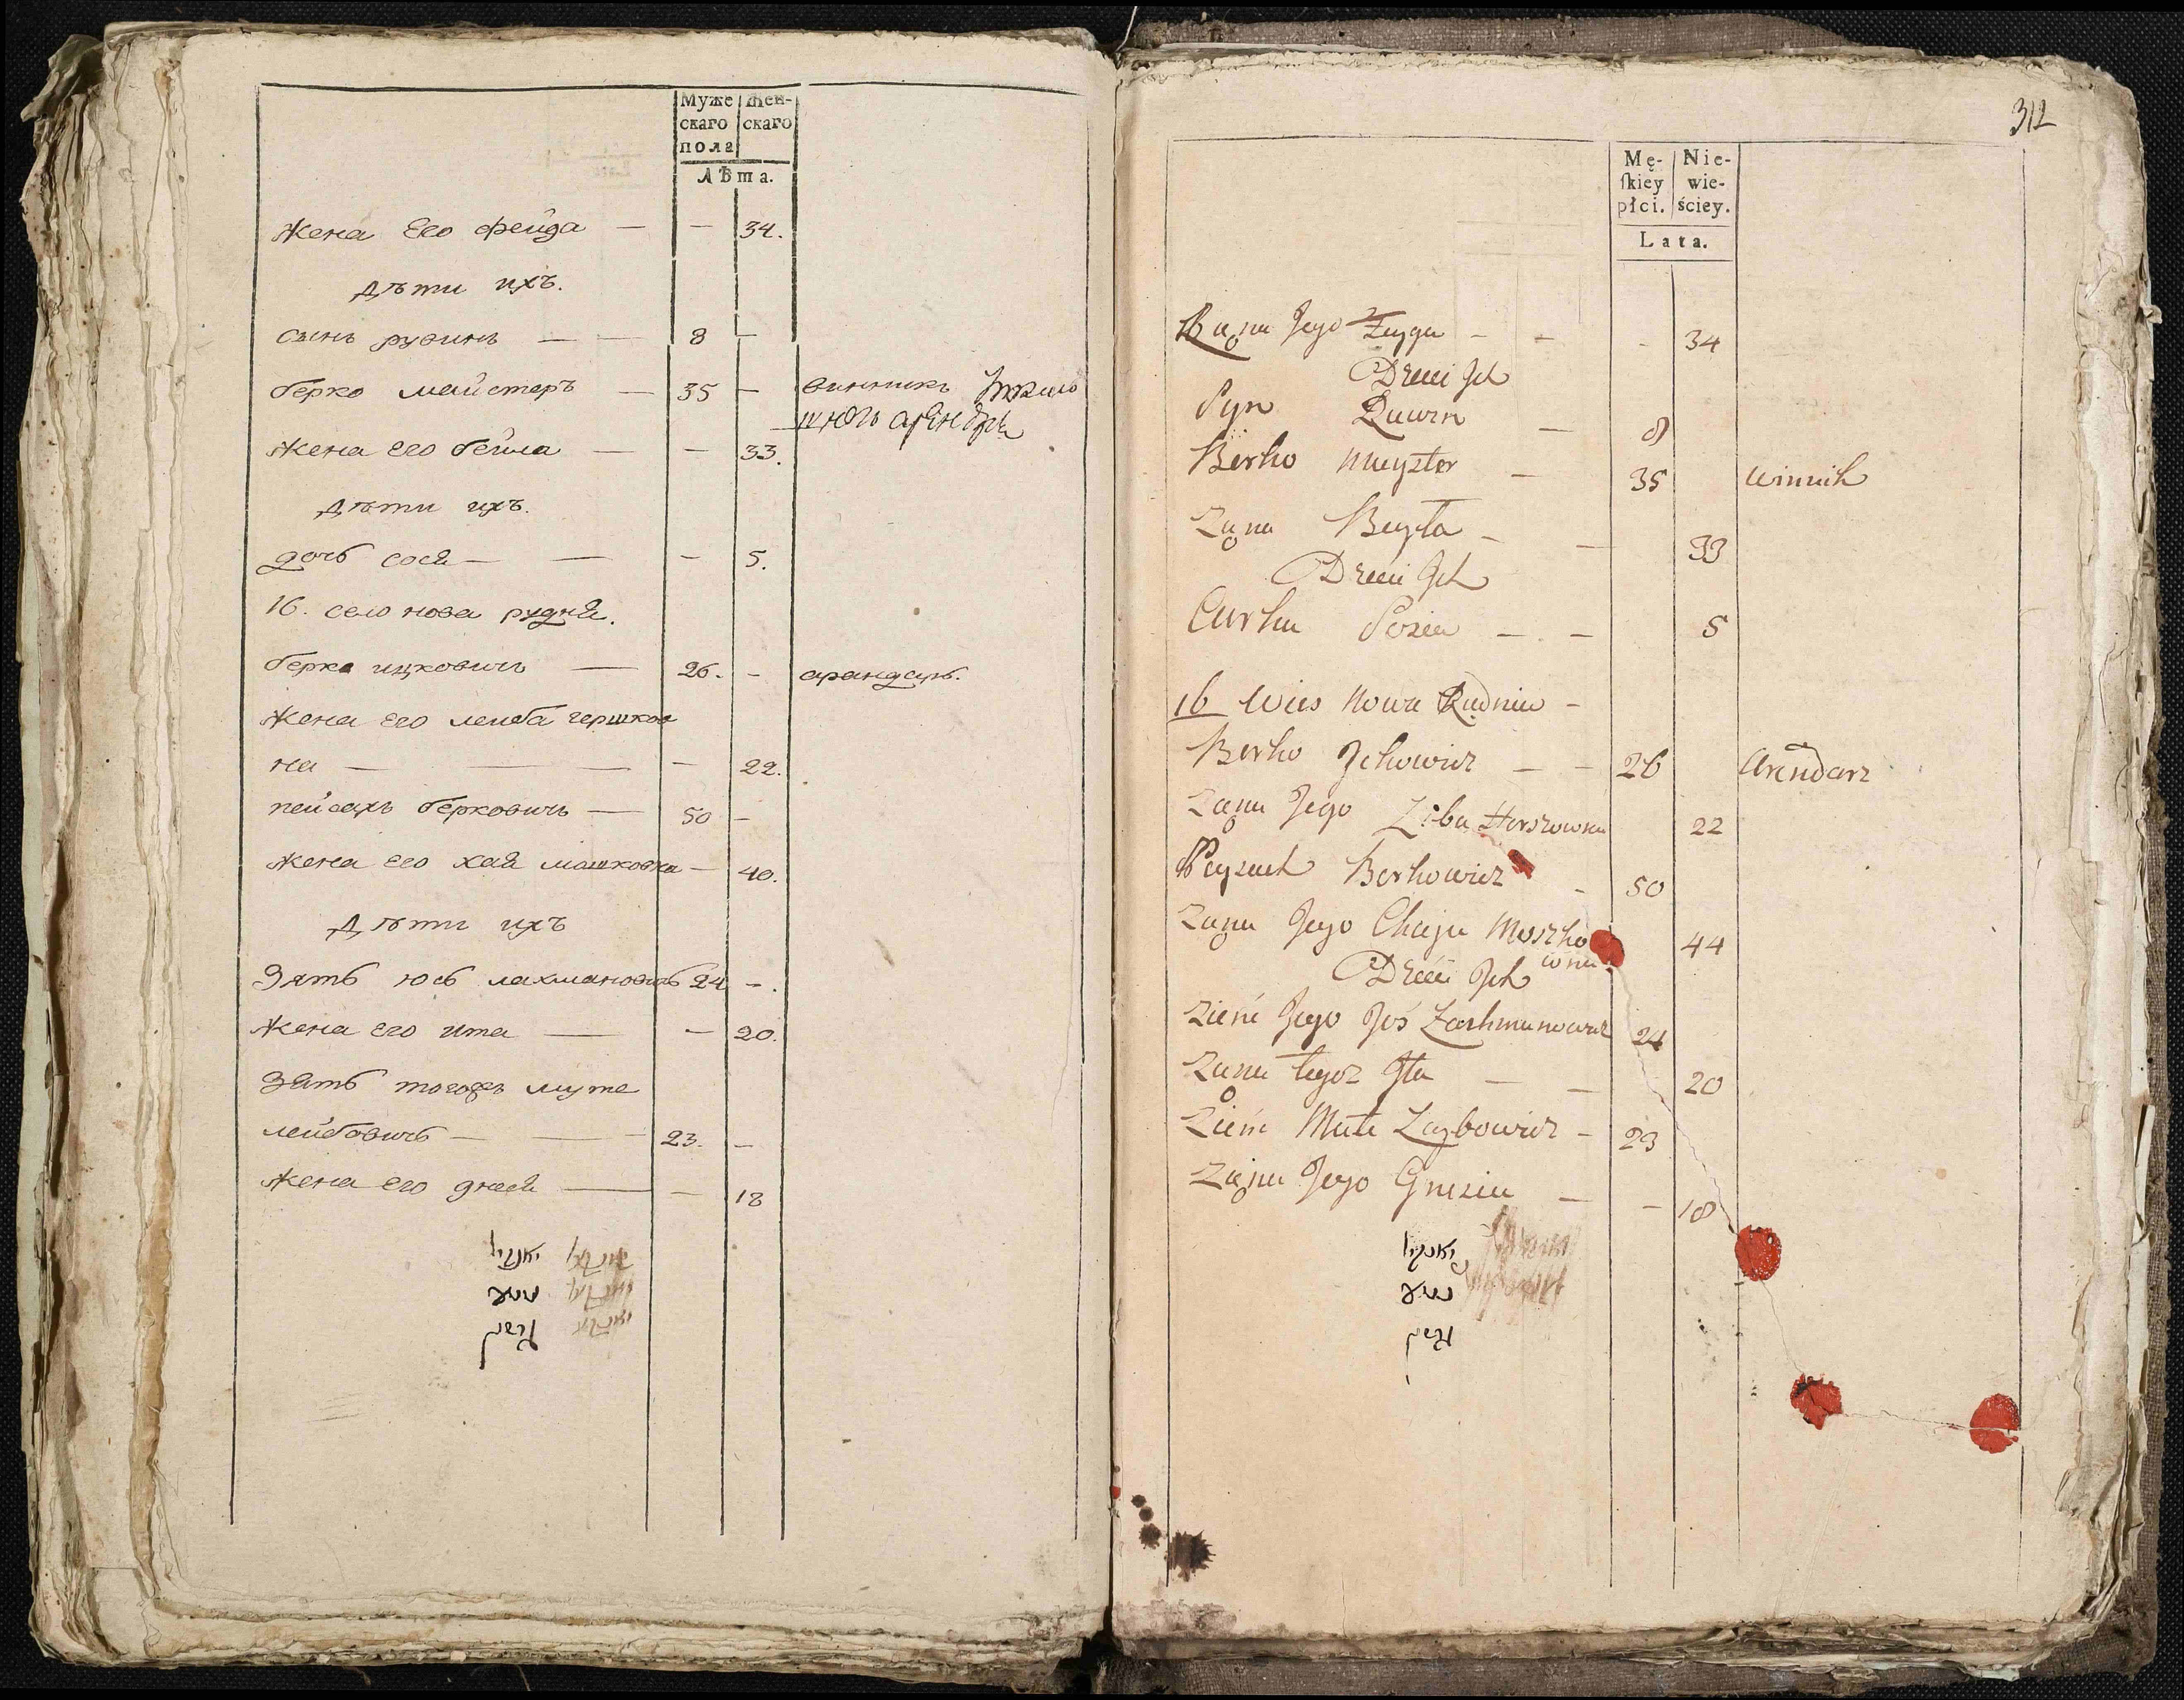 Муже
скаго
пола
Жен-
скаго
Лѣта.
Жена Его фейга — — 34.
Дѣти ихъ.
сынъ рувинъ — — 8 —
берко майстеръ — 35 — винникъ
Жена его бейла — — 33.
Дѣти ихъ.
дочь сося — — — 5.
16. село нова рудня.
берко ицковичъ — 26. — арандарь.
Жена его лейба гершков
на — — — 22.
пейсахъ берковичъ — 50 —
Жена его хая мошковна — 40.
Дѣти ихъ
Зять юсь лахмановичь 24 —.
Жена его ита — — 20.
Зять тогожъ муте
лейбовичь — — 23. —
Жена его гнеся — — 18
312
Mę-
ſkiey
płci.
Nie-
wie-
ściey.
Lata.
Żona Jego Fayga - - - 34
Dzieci Ich
Syn Ruwin — 8
Berko Mayster — 35 Winnik
Żona Beyła - — 33
Dzieci Ich
Curka Sosia — . — 5
16 Wieś Nowa Rudnia -
Berko Ickowicz — — 26 Arendarz
Żona Jego Leba Herszowna 22
Peysach Berkowicz - 50
Żona Jego Chaja Moszko
wna 44
Dzieci Ich
Zięć Jego Joś Lachmanowicz 24
Żona tegoż Ita — — 20
Zięć Mute Laybowicz - 23
Żona Jego Gnesia — - 18